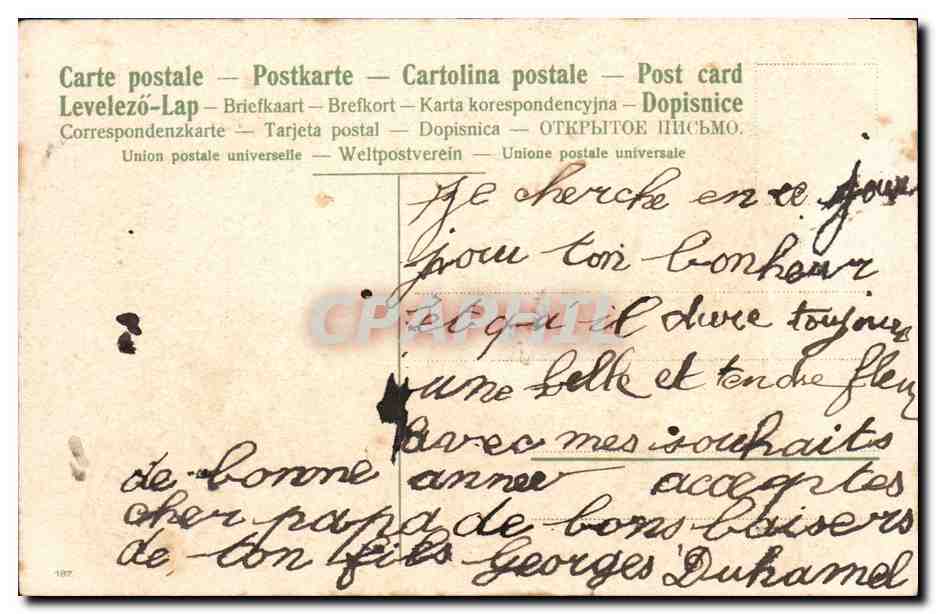 Carte postale — Postkarte — Cartolina postale — Post card
Levelező-Lap – Briefkaart – Brefkort – Karta korespondencyjna – Dopisnice
Correspondenzkarte — Tarjeta postal — Dopisnica — ОТКРЫТОЕ ПИСЬМО.
Union postale universelle — Weltpostverein — Unione postale universale
Je cherche en ce jour
pour ton bonheur
et qu'il dure toujours
une belle et tendre fleur
avec mes souhaits
de bonne anneé acceptes
cher papa de bons baisers
de ton fils Georges Duhamel
CPAPHIL
187